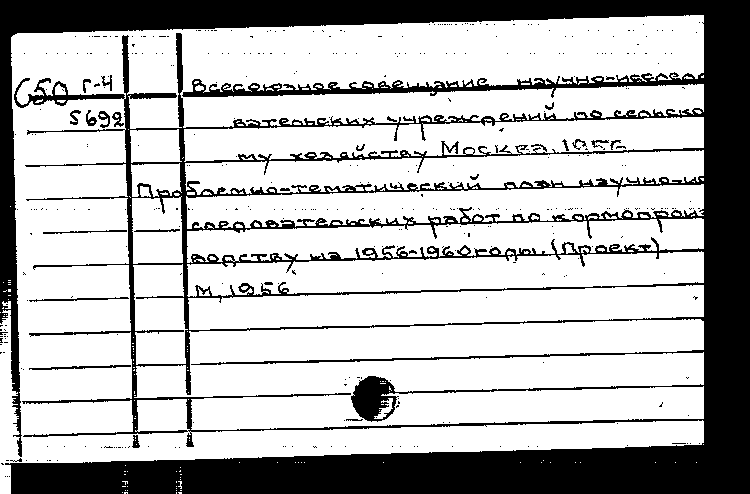 С50 Г-4 Всесоюзное совещание научно-исследо
5692 вательских учреждений по сельско
му хозяйству Москва. 1956
Проблемно-тематический план научно-ис
следовательских работ по кормопроиз
водству на 1956-1960 годы. (Проект)
М, 1956